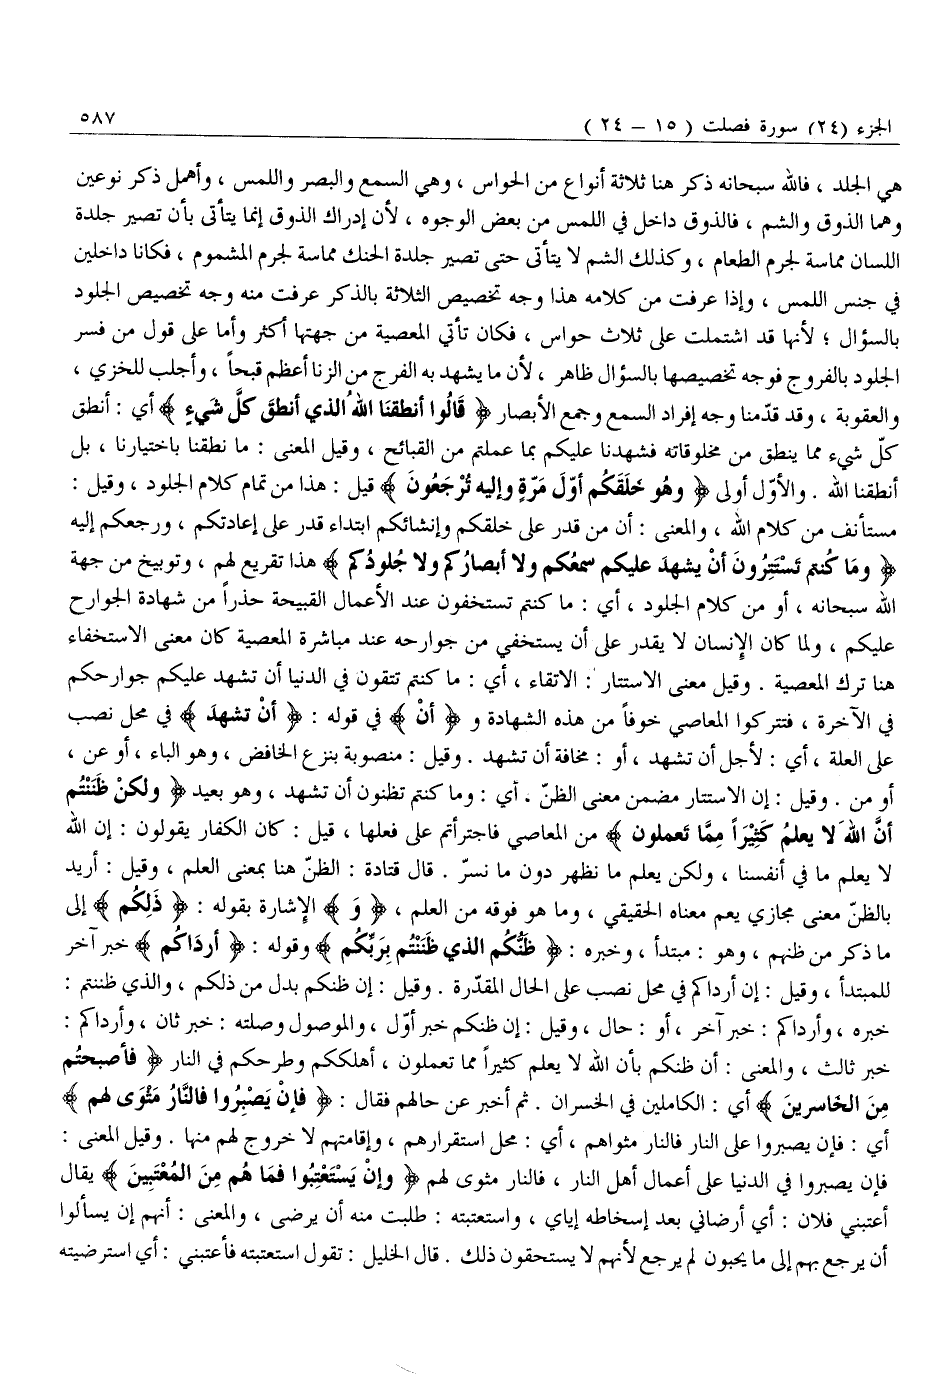 الجزء (٢٤) سورة فصلت ( ١٥ – ٢٤ )
٥٨٧
هي الجلد ، فالله سبحانه ذكر هنا ثلاثة أنواع من الحواس ، وهي السمع والبصر واللمس ، وأهمل ذكر نوعين
وهما الذوق والشم ، فالذوق داخل في اللمس من بعض الوجوه ، لأن إدراك الذوق إنما يتأتى بأن تصير جلدة
اللسان مماسة لجرم الطعام ، وكذلك الشم لا يتأتى حتى تصير جلدة الحنك مماسة لجرم المشموم ، فكانا داخلين
في جنس اللمس ، وإذا عرفت من كلامه هذا وجه تخصيص الثلاثة بالذكر عرفت منه وجه تخصيص الجلود
بالسؤال ؛ لأنها قد اشتملت على ثلاث حواس ، فكان تأتي المعصية من جهتها أكثر وأما على قول من فسر
الجلود بالفروج فوجه تخصيصها بالسؤال ظاهر ، لأن ما يشهد به الفرج من الزنا أعظم قبحاً ، وأجلب للخزي ،
والعقوبة ، وقد قدّمنا وجه إفراد السمع وجمع الأبصار ﴿ قَالُوا أنطقنَا اللهُ الذي أنطقَ كلَّ شَيءٍ ﴾ أي : أنطق
كلّ شيء مما ينطق من مخلوقاته فشهدنا عليكم بما عملتم من القبائح ، وقيل المعنى : ما نطقنا باختيارنا ، بل
أنطقنا الله . والأوّل أولى ﴿ وهُو خلَقَكُم أوّلَ مَرّةٍ وإليه تُرْجَعُونَ ﴾ قيل : هذا من تمام كلام الجلود ، وقيل :
مستأنف من كلام الله ، والمعنى : أن من قدر على خلقكم وإنشائكم ابتداء قدر على إعادتكم ، ورجعكم إليه
﴿ ومَا كُنتم تَسْتَتِرُونَ أنْ يشهدَ عليكم سمعُكم ولا أبصارُكم ولا جُلودُكم ﴾ هذا تقريع لهم ، وتوبيخ من جهة
الله سبحانه ، أو من كلام الجلود ، أي : ما كنتم تستخفون عند الأعمال القبيحة حذراً من شهادة الجوارح
عليكم ، ولما كان الإنسان لا يقدر على أن يستخفي من جوارحه عند مباشرة المعصية كان معنى الاستخفاء
هنا ترك المعصية . وقيل معنى الاستتار : الاتقاء ، أي : ما كنتم تتقون في الدنيا أن تشهد عليكم جوارحكم
في الآخرة ، فتتركوا المعاصي خوفاً من هذه الشهادة و ﴿ أنْ ﴾ في قوله : ﴿ أنْ تشهدَ ﴾ في محل نصب
على العلة ، أي : لأجل أن تشهد ، أو : مخافة أن تشهد . وقيل : منصوبة بنزع الخافض ، وهو الباء ، أو عن ،
أو من . وقيل : إن الاستتار مضمن معنى الظنّ . أي : وما كنتم تظنون أن تشهد ، وهو بعيد ﴿ ولكنْ ظَنَنْتُم
أنَّ اللهَ لا يعلمُ كَثِيْرَاً مِمَّا تَعملون ﴾ من المعاصي فاجترأتم على فعلها ، قيل : كان الكفار يقولون : إن الله
لا يعلم ما في أنفسنا ، ولكن يعلم ما نظهر دون ما نسرّ . قال قتادة : الظنّ هنا بمعنى العلم ، وقيل : أريد
بالظنّ معنى مجازي يعم معناه الحقيقي ، وما هو فوقه من العلم ، ﴿ وَ ﴾ الإشارة بقوله : ﴿ ذَلِكُم ﴾ إلى
ما ذكر من ظنهم ، وهو : مبتدأ ، وخبره : ﴿ ظَنُّكُم الذي ظَنَنْتُم بِرَبِّكُم ﴾ وقوله : ﴿ أردَاكُم ﴾ خبر آخر
للمبتدأ ، وقيل : إن أرداكم في محل نصب على الحال المقدّرة . وقيل : إن ظنكم بدل من ذلكم ، والذي ظننتم :
خبره ، وأرداكم : خبر آخر ، أو : حال ، وقيل : إن ظنكم خبر أوّل ، والموصول وصلته : خبر ثان ، وأرداكم :
خبر ثالث ، والمعنى : أن ظنكم بأن الله لا يعلم كثيراً مما تعملون ، أهلككم وطرحكم في النار ﴿ فأصبحتُم
مِنَ الخَاسرينَ ﴾ أي : الكاملين في الخسران . ثم أخبر عن حالهم فقال : ﴿ فإنْ يَصْبِرُوا فالنَّارُ مَثْوَى لهم ﴾
أي : فإن يصبروا على النار فالنار مثواهم ، أي : محل استقرارهم ، وإقامتهم لا خروج لهم منها . وقيل المعنى :
فإن يصبروا في الدنيا على أعمال أهل النار ، فالنار مثوى لهم ﴿ وإنْ يَسْتَعْتِبُوا فمَا هُم مِنَ المُعْتَبِينَ ﴾ يقال
أعتبني فلان : أي أرضاني بعد إسخاطه إياي ، واستعتبته : طلبت منه أن يرضى ، والمعنى : أنهم إن يسألوا
أن يرجع بهم إلى ما يحبون لم يرجع لأنهم لا يستحقون ذلك . قال الخليل : تقول استعتبته فأعتبني : أي استرضيته